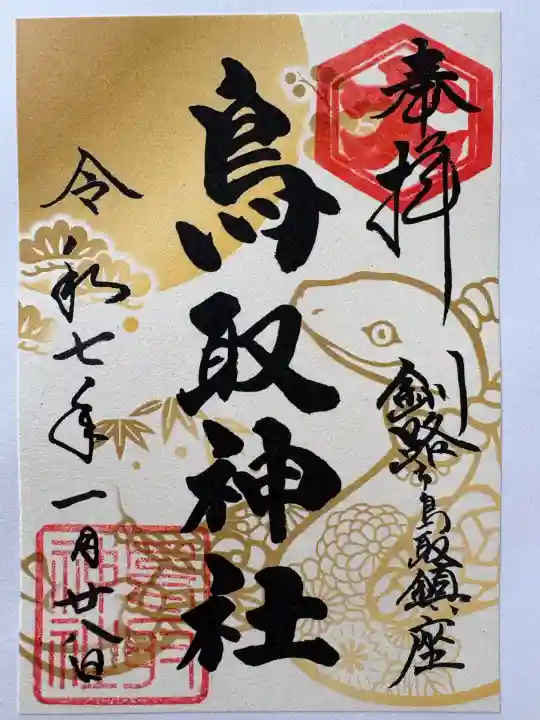 奉拝
釧路ヶ鳥取鎮座
鳥取神社
令和七年一月廿八日
鳥取神社